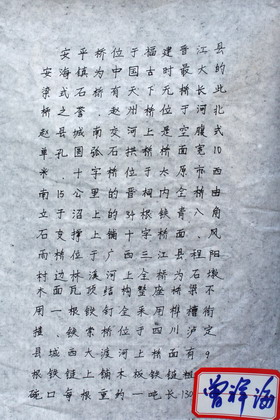 安平桥位于福建晋江县
安海镇为中国古时最大的
梁式石桥有天下无桥长此
桥之誉．赵州桥位于河北
赵县城南交河上是空腹式
单孔圆弧石拱桥桥面宽10
米．十字桥位于太原市西
南15公里的晋祠内全桥由
立于沼上的34根铁青八角
石支撑上铺十字桥面．风
雨桥位于广西三江县程阳
村边林溪河上全桥为石墩
木面瓦顶结构整座桥梁不
用一根铁钉全采用榫槽衔
接．铁索桥位于四川泸定
县城西大渡河上桥面有9
根铁链上铺木板铁链粗
碗口每根重约一吨长130
曾祥海